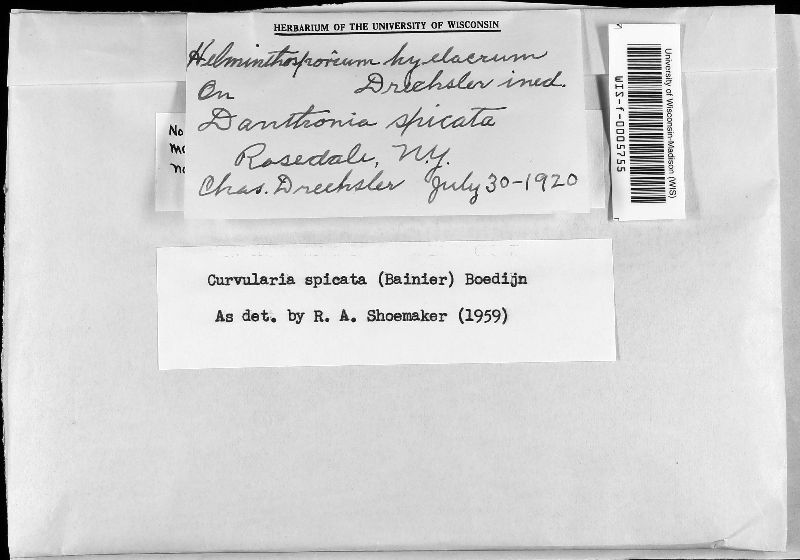 HERBARIUM OF THE UNIVERSITY OF WISCONSIN
Helminthosporium hyelacrum
On Drechsler ined.
Danthonia spicata
Rosedale, N.Y.
Chas. Drechsler July 30-1920
No
Curvularia spicata (Bainier) Boedijn
As det. by R. A. Shoemaker (1959)
University of Wisconsin-Madison (WIS)
WIS-f-0005755